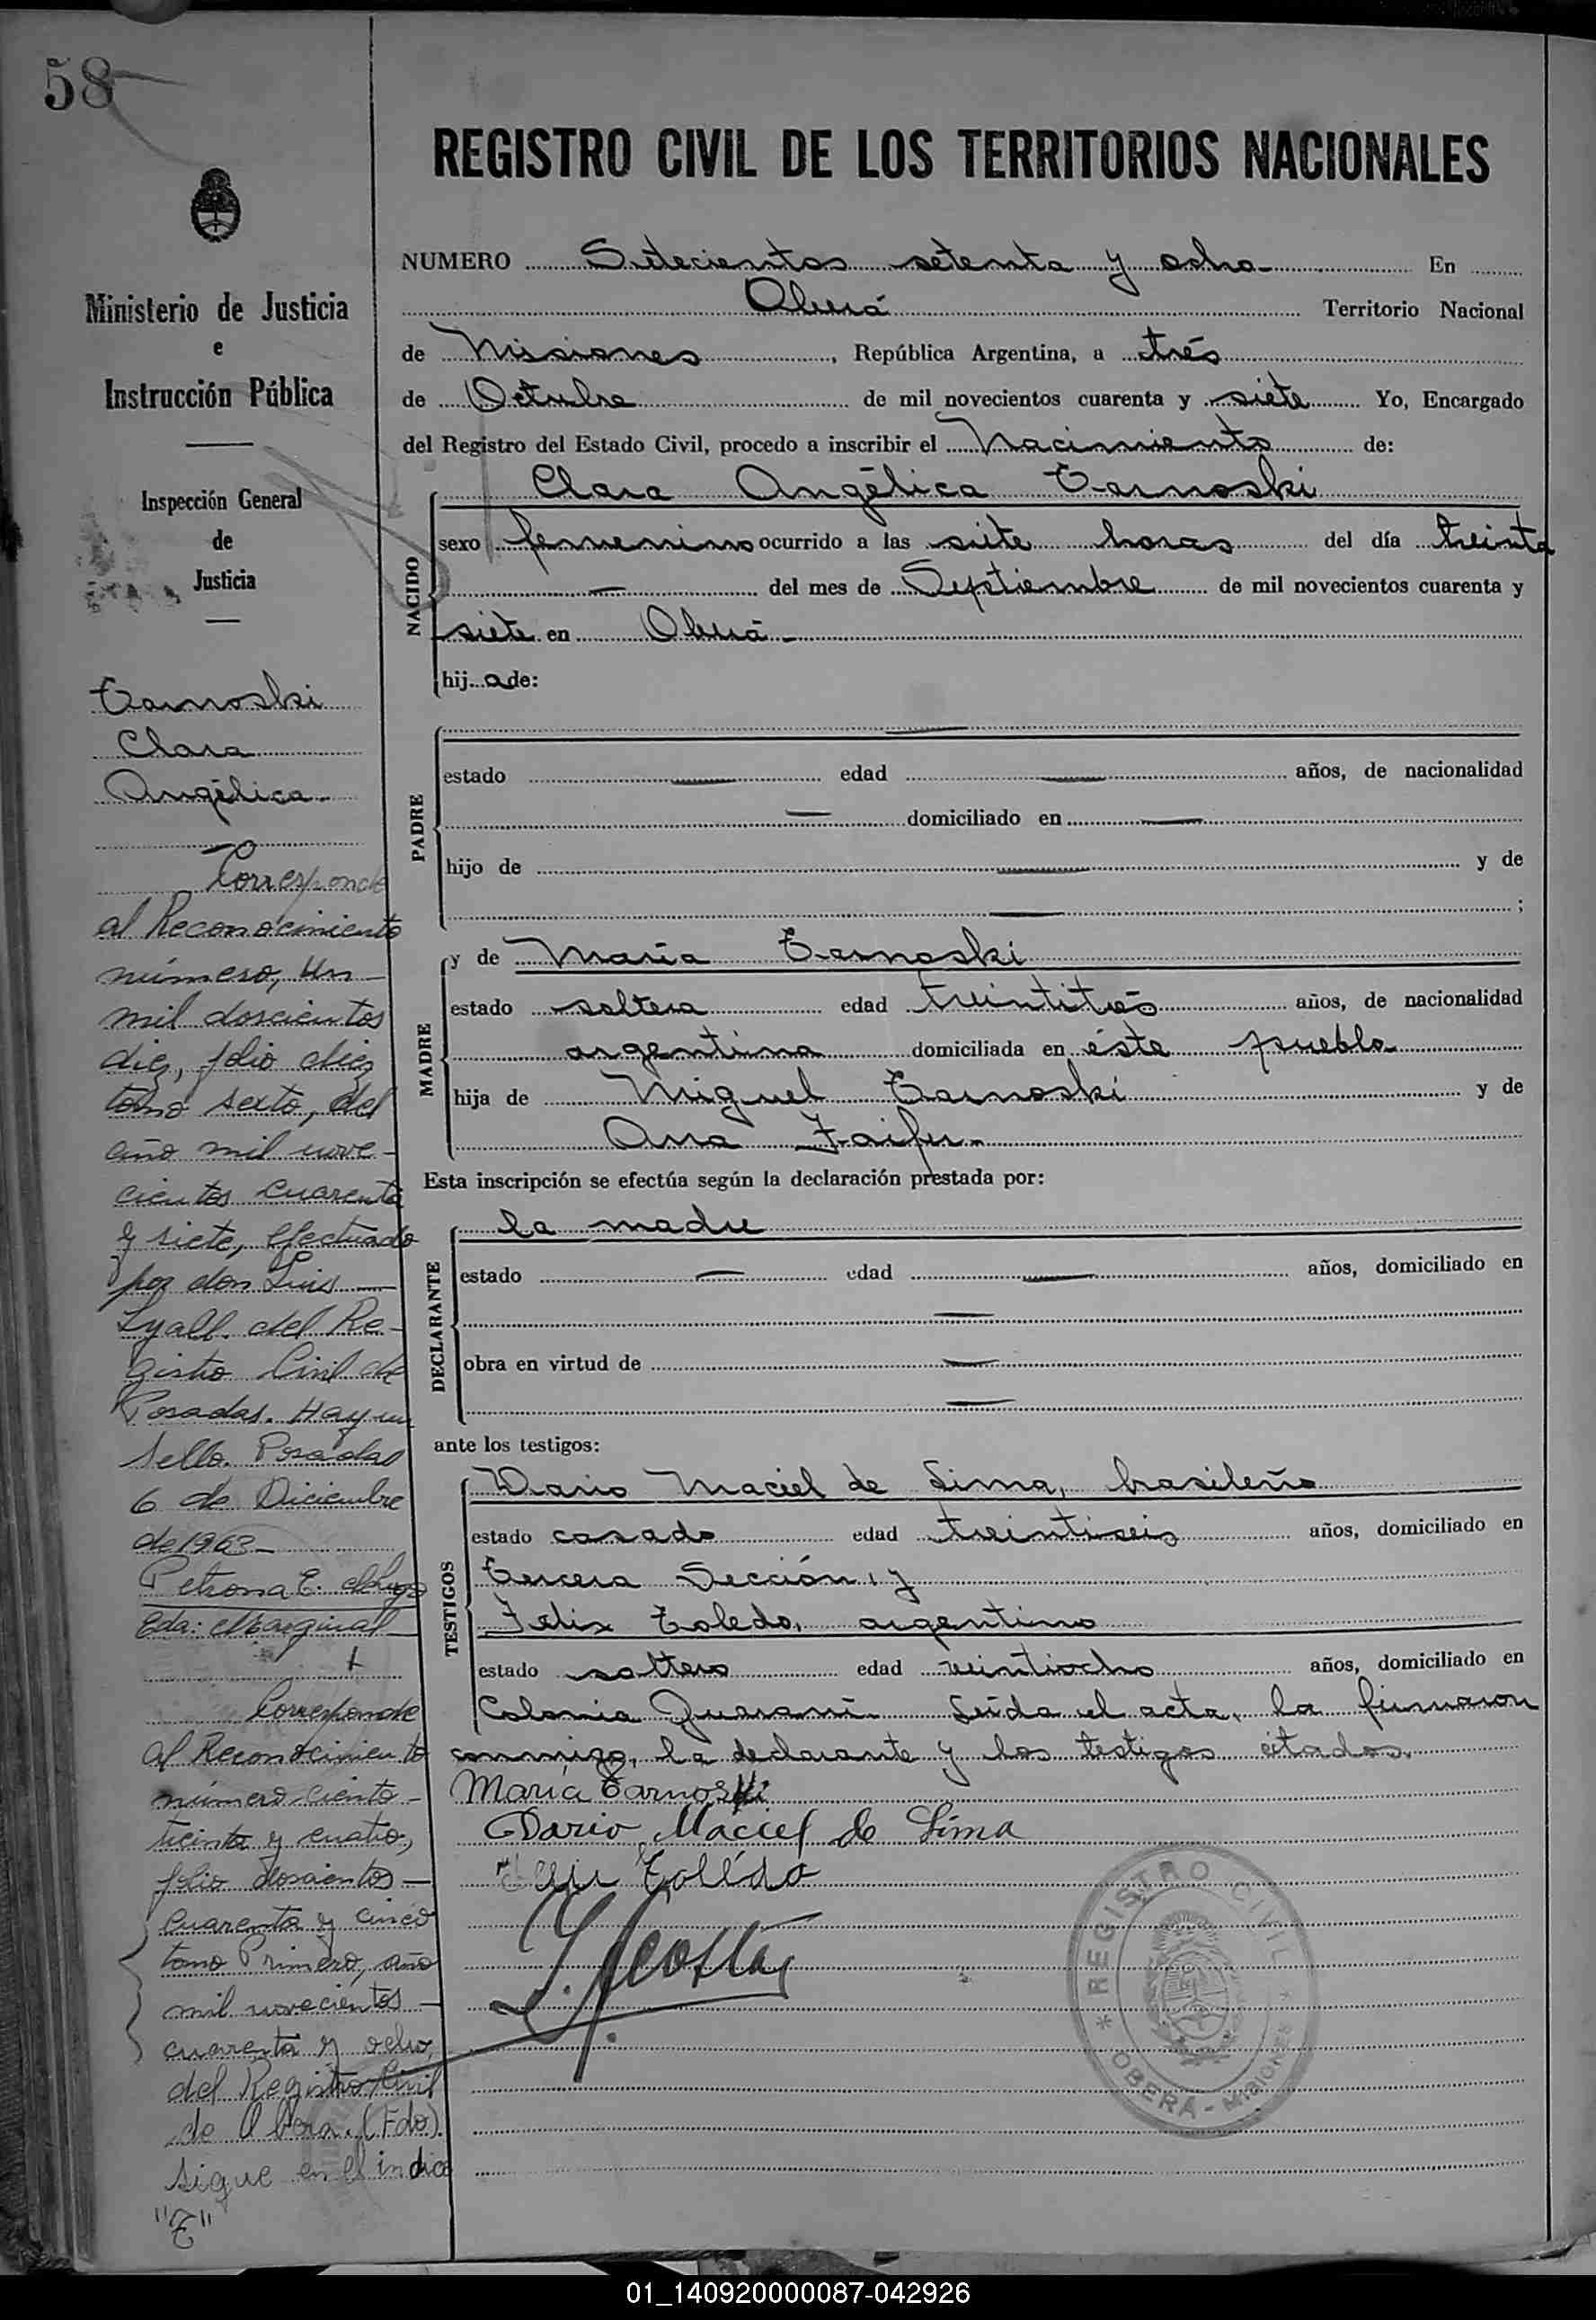 58
Ministerio de Justicia
e
Instrucción Pública
Inspección General
de
Justicia
Tarnoski
Clara
Angélica
Corresponde
al Reconocimiento
número, Un
mil doscientos
diez, folio diez
tomo sexto, del
año mil nove-
cientos cuarenta
y siete, efectuado
por don Luis
Lyall. del Re-
gistro Civil de
Posadas. Hay un
sello. Posadas
6 de Diciembre
de 1963
Petrona E. de Lugo
Eda: Marginal
Corresponde
al Reconocimiento
número ciento
treinta y cuatro,
folio doscientos
cuarenta y cinco
tomo Primero, año
mil novecientos
cuarenta y ocho,
del Registro Civil
de Obera. (Fdo).
sigue en el indice
"T"
REGISTRO CIVIL DE LOS TERRITORIOS NACIONALES
NUMERO Setecientos setenta y ocho En
Oberá Territorio Nacional
de Misiones, República Argentina, a trés
de Octubre de mil novecientos cuarenta y siéte Yo, Encargado
del Registro del Estado Civil, procedo a inscribir el Nacimiento de:
NACIDO
Clara Angélica Tarnoski
sexo femenino ocurrido a las siéte horas del día treinta
— del mes de Septiembre de mil novecientos cuarenta y
siéte en Oberá -
hija de:
PADRE
—
estado — edad — años, de nacionalidad
— domiciliado en —
hijo de — y de
— ;
MADRE
y de María Tarnoski
estado soltera edad treintitrés años, de nacionalidad
argentina domiciliada en éste pueblo
hija de Miguel Tarnoski y de
Ana
Esta inscripción se efectúa según la declaración prestada por:
DECLARANTE
la madre
estado — edad — años, domiciliado en
—
obra en virtud de —
—
ante los testigos:
TESTIGOS
Dario Maciel de Lima, brasileño
estado casado edad treintiseis años, domiciliado en
Tercera Sección, y
Felix Toledo, argentino
estado soltero edad veintiocho años, domiciliado en
Colonia Guaraní. Leída el acta, la firmaron
conmigo, la declarante y los testigos citados.
María Tarnoski
Dario Maciel de Lima
Toledo
Acosta
REGISTRO CIVIL
* OBERÁ - MISIONES *
01_140920000087-042926